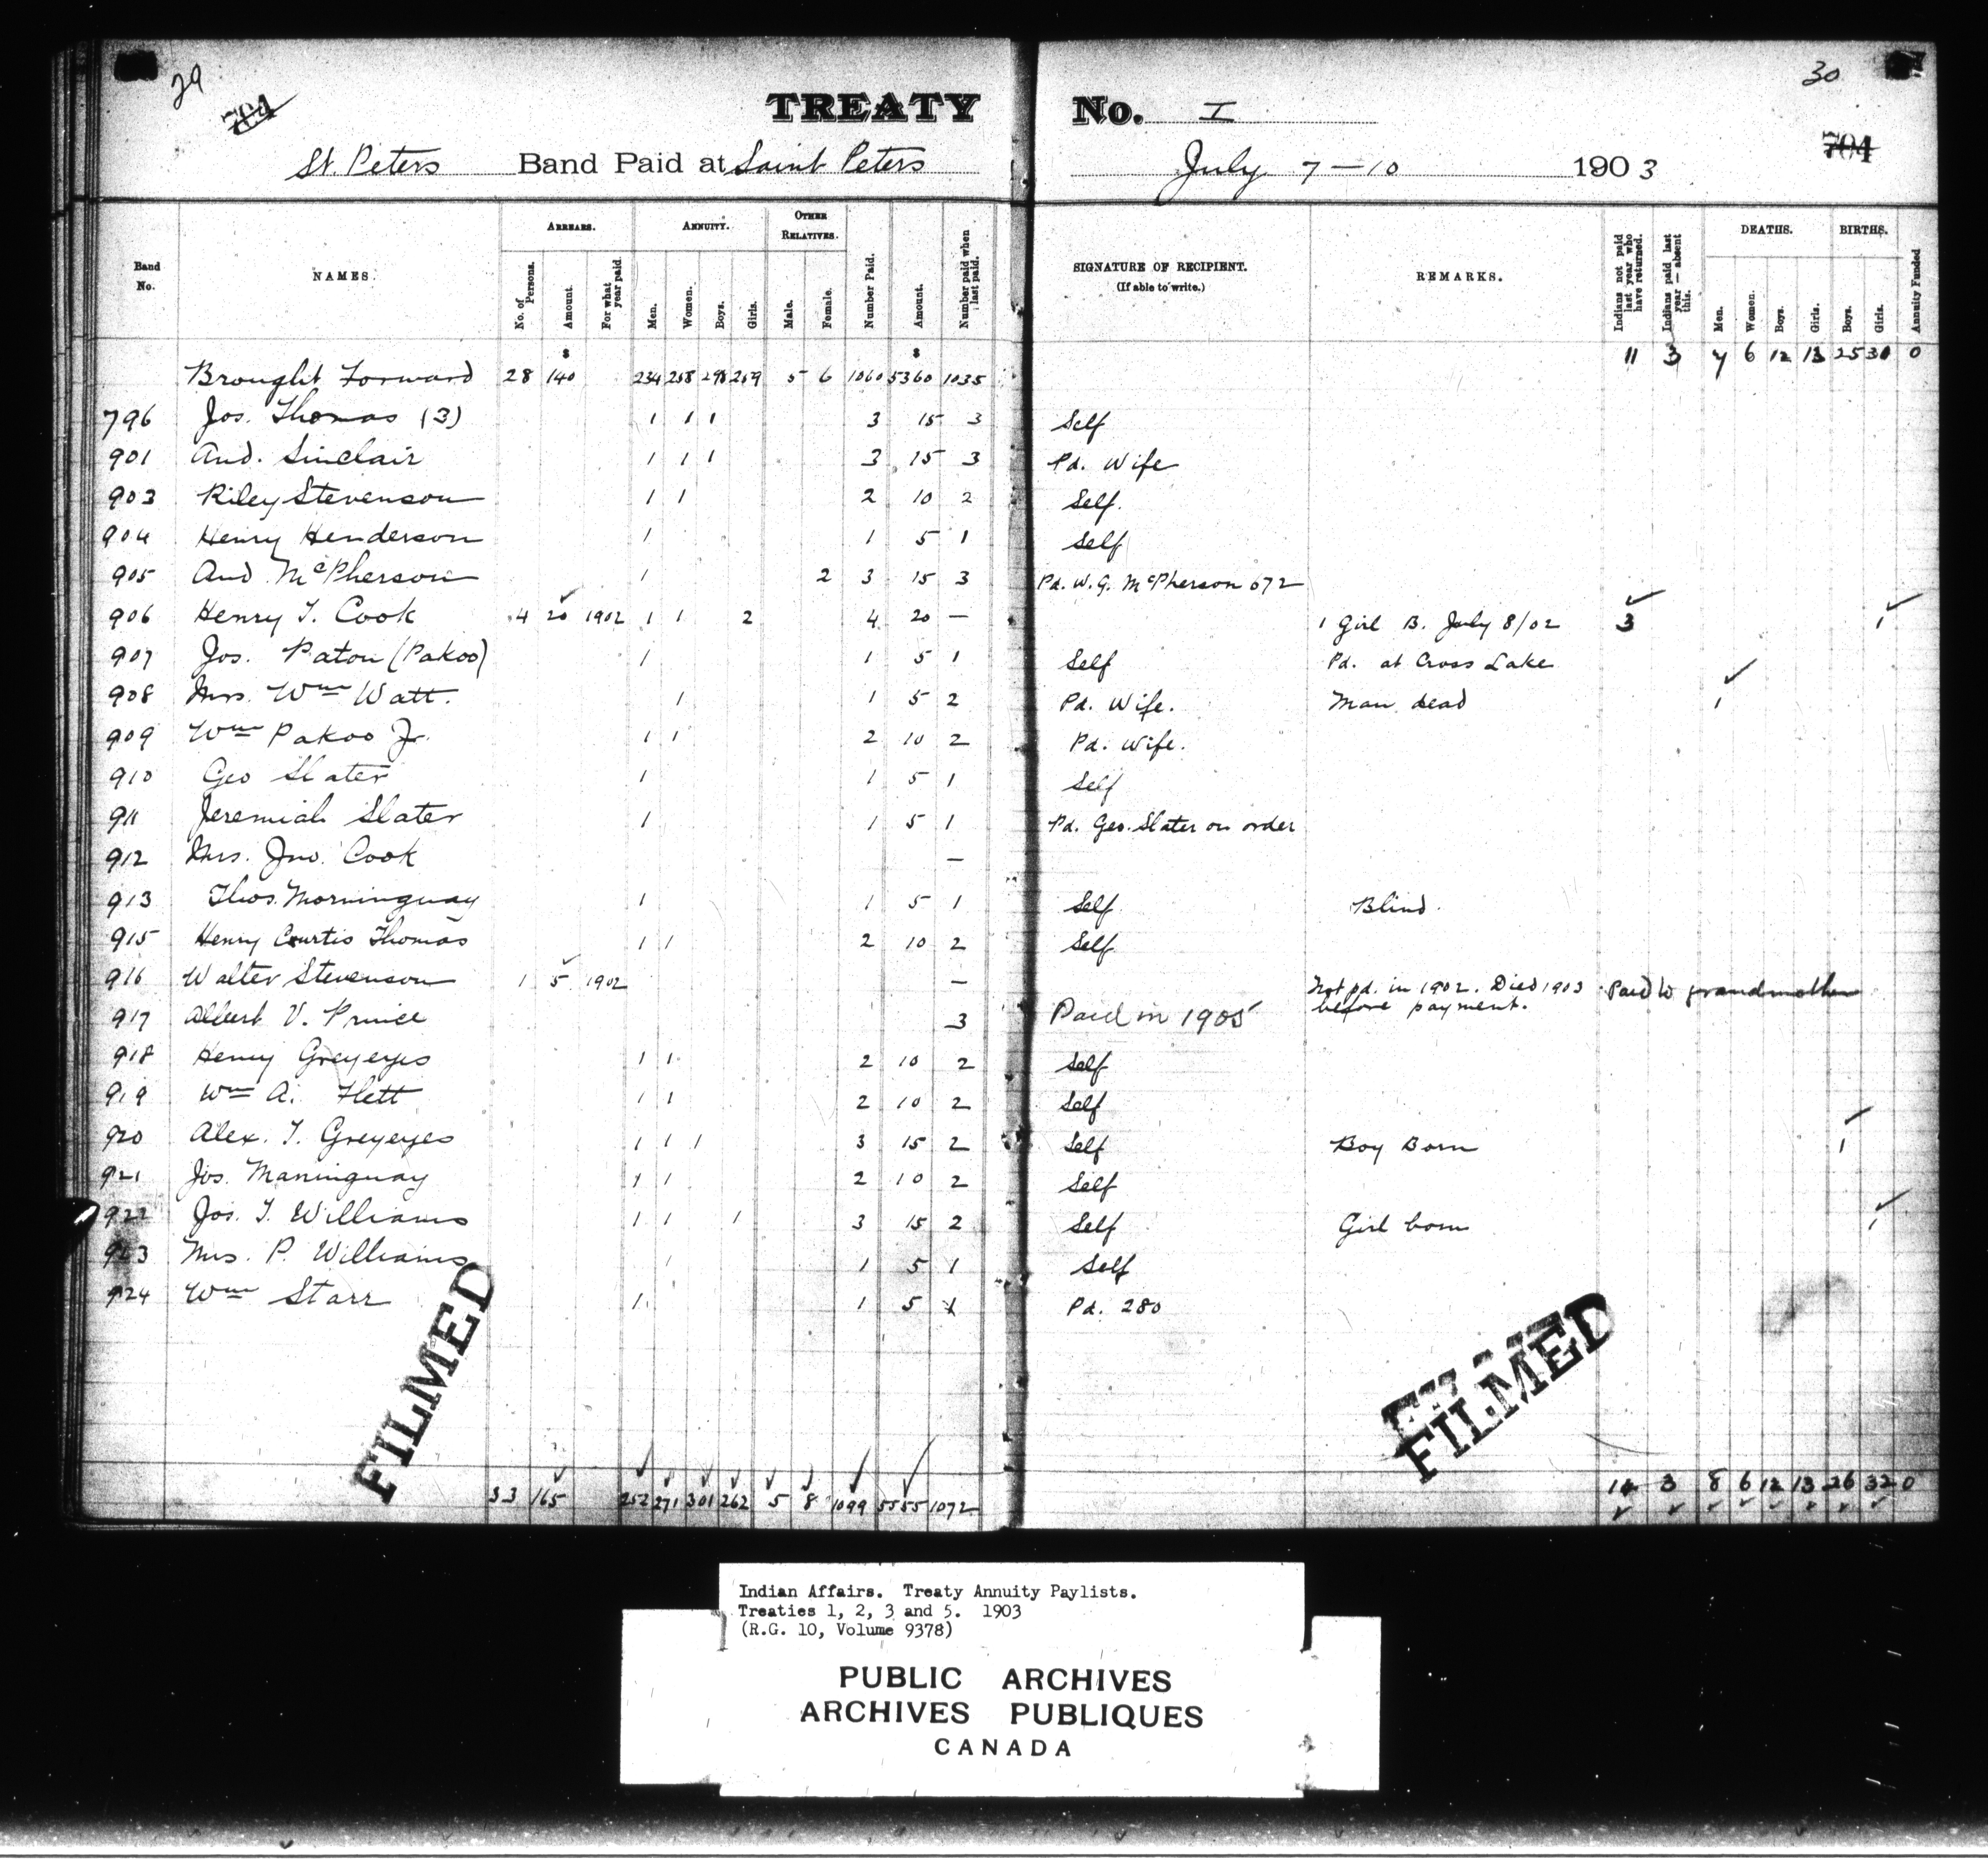 29
30
704
704
TREATY No. I
St. Peters Band Paid at Saint Peters July 7 — 10 1903
Band No.
NAMES.
ARREARS.
No. of Persons.
Amount.
For what year paid.
ANNUITY.
Men.
Women.
Boys.
Girls.
OTHER RELATIVES.
Male.
Female.
Number Paid.
Amount.
Number paid when last paid.
SIGNATURE OF RECIPIENT.
(If able to write.)
REMARKS.
Indians not paid last year who have returned.
Indians paid last year — absent this.
DEATHS.
Men.
Women.
Boys.
Girls.
BIRTHS.
Boys.
Girls.
Annuity Funded
$ $
Brought Forward 28 140 234 258 298 259 5 6 1060 5360 1035 11 3 7 6 12 13 25 30 0
796 Jos. Thomas (3) 1 1 1 3 15 3 Self
901 And. Sinclair 1 1 1 3 15 3 Pd. Wife
903 Riley Stevenson 1 1 2 10 2 Self.
904 Henry Henderson 1 1 5 1 Self
905 And McPherson 1 2 3 15 3 Pd. W. G. McPherson 672
906 Henry T. Cook 4 20 1902 1 1 2 4 20 — 1 Girl B. July 8/02 3 1
907 Jos. Paton (Pakoo) 1 1 5 1 Self Pd. at Cross Lake
908 Mrs. Wm Watt. 1 1 5 2 Pd. Wife. Man dead 1
909 Wm Pakoo Jr. 1 1 2 10 2 Pd. Wife.
910 Geo Slater 1 1 5 1 Self
911 Jeremiah Slater 1 1 5 1 Pd. Geo. Slater on order
912 Mrs. Jno. Cook —
913 Thos. Morninguay 1 1 5 1 Self Blind.
915 Henry Curtis Thomas 1 1 2 10 2 Self
916 Walter Stevenson 1 5 1902 — Not pd. in 1902. Died 1903 before payment. Paid to grandmother
917 Albert V. Prince 3 Paid in 1905
918 Henry Greyeyes 1 1 2 10 2 Self
919 Wm A. Flett 1 1 2 10 2 Self
920 Alex. T. Greyeyes 1 1 1 3 15 2 Self Boy Born 1
921 Jos. Maninguay 1 1 2 10 2 Self
922 Jos. T. Williams 1 1 1 3 15 2 Self Girl born 1
923 Mrs. P. Williams 1 1 5 1 Self
924 Wm Starr 1 1 5 1 Pd. 280
FILMED
FILMED
33 165 252 271 301 262 5 8 1099 5555 1072 14 3 8 6 12 13 26 32 0
Indian Affairs. Treaty Annuity Paylists.
Treaties 1, 2, 3 and 5. 1903
(R.G. 10, Volume 9378)
PUBLIC ARCHIVES
ARCHIVES PUBLIQUES
CANADA